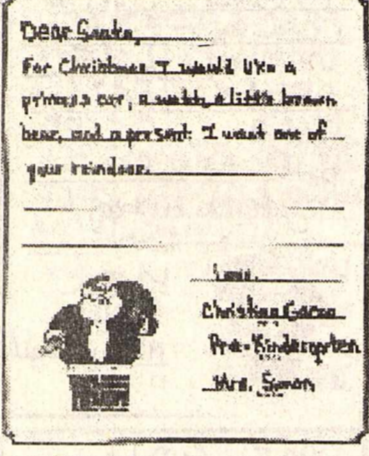 Dear Santa,
For Christmas I would like a
princess car, a watch, a little brown
bear, and a present. I want one of
your reindeer.
Love,
Pre-Kindergarten
Mrs. Simon